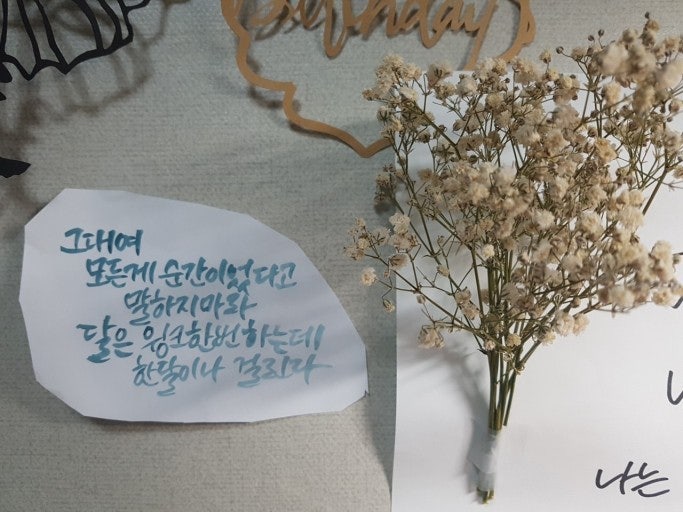 Birthday
그대여
모든게 순간이었다고
말하지마라
달은 윙크한번 하는데
한달이나 걸린다
나는